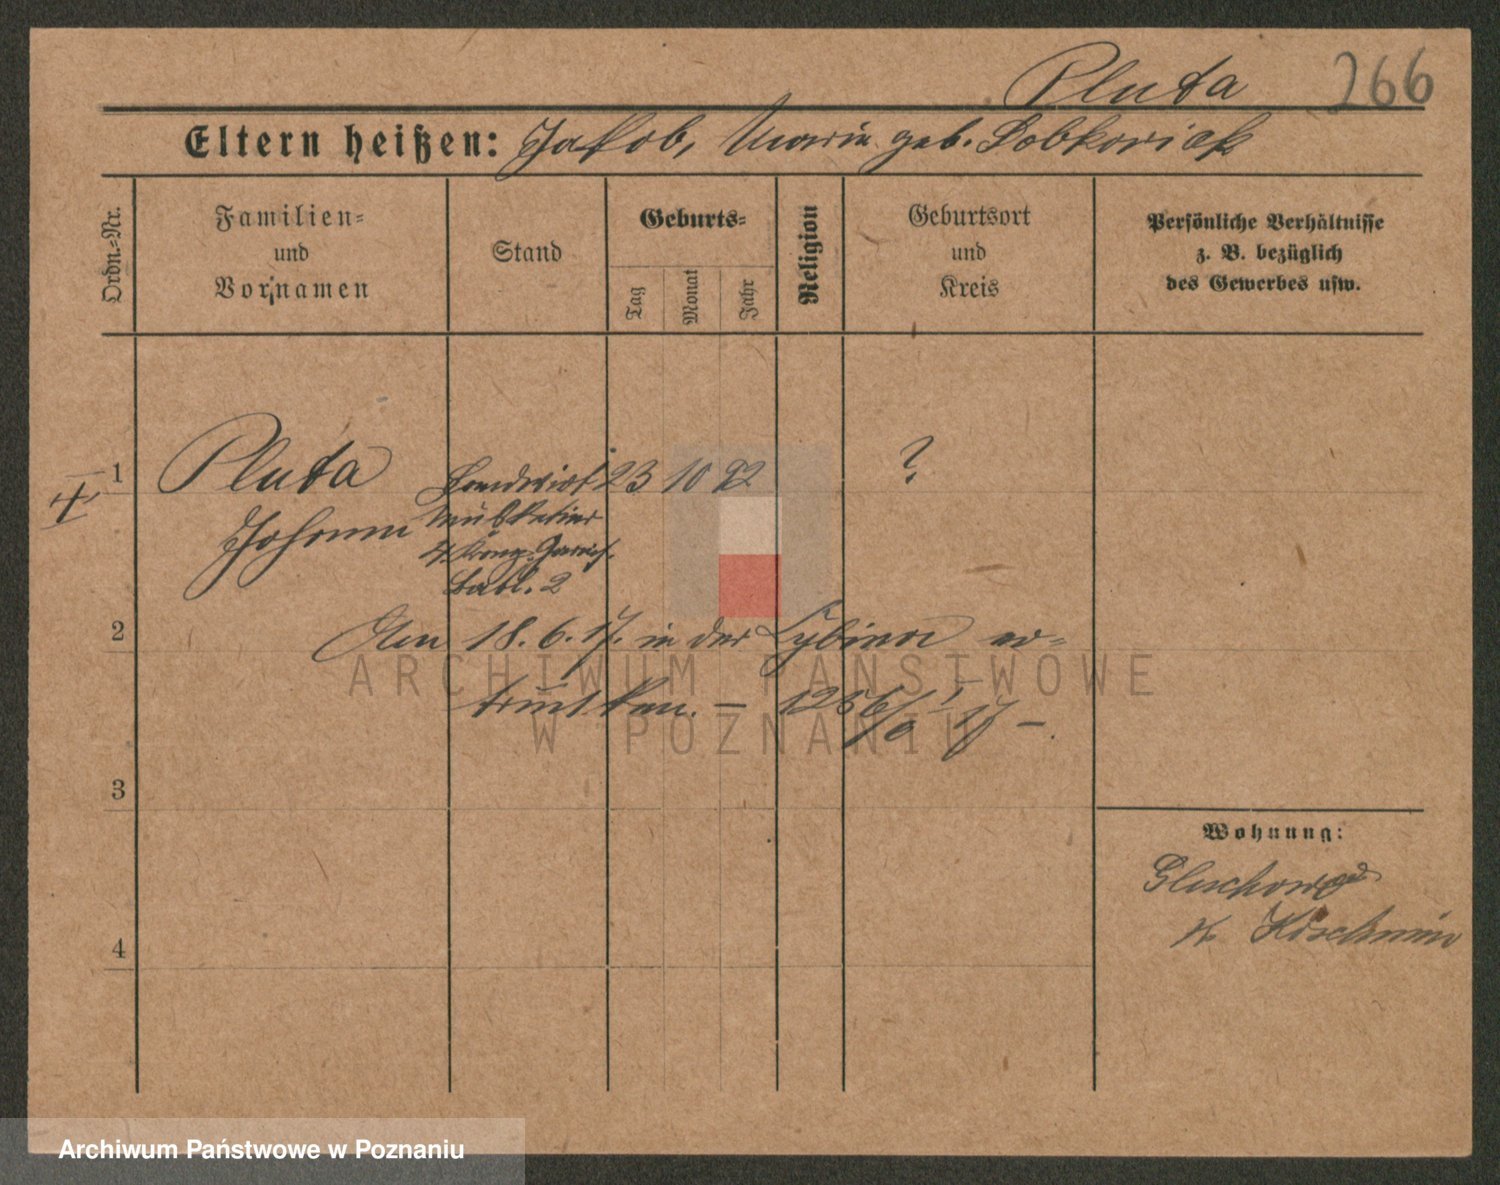 Pluta
266
Eltern heißen: Jakob, Marie geb. Sobkowiak
Ordn.-Nr.
Familien-
und
Vornamen
Stand
Geburts-
Tag
Monat
Jahr
Religion
Geburtsort
und
Kreis
Persönliche Verhältnisse
z. B. bezüglich
des Gewerbes usw.
1
Pluta
Landwirt 23 10 92
?
Johann
Musketier
Garnis.
Batl. 2
2
Am 18. 6. 17. in der Cybina er-
trunken. —
ARCHIWUM PAŃSTWOWE
W POZNANIU
3
Wohnung:
K. Koschmin
4
Archiwum Państwowe w Poznaniu